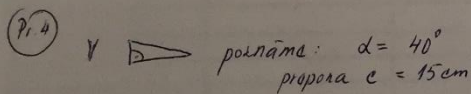 Př. 4
V poznáme: α = 40°
prepona c = 15 cm